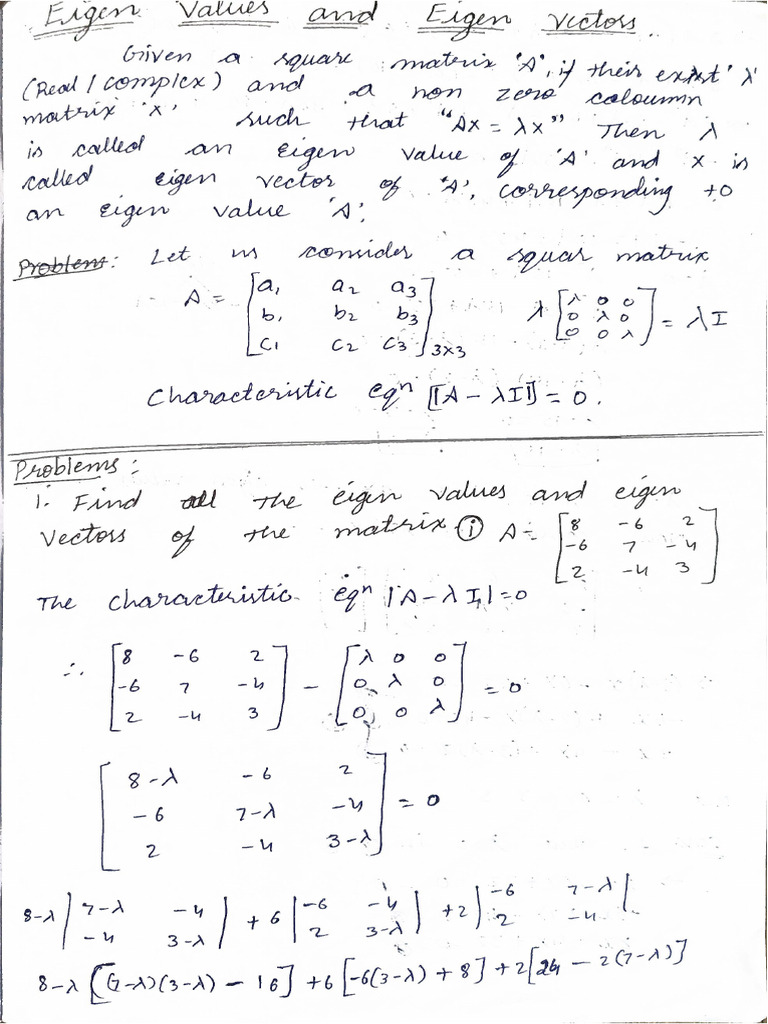 Eigen Values and Eigen Vectors.
Given a square matrix 'A', if their exist 'λ'
(Real / complex) and a non zero coloumn
matrix 'x' such that "Ax = λx" Then λ
is called an eigen value of 'A' and x is
called eigen vector of 'A', corresponding to
an eigen value 'A'.
Problem: Let us consider a squar matrix
A = [a1 a2 a3 λ [λ 0 0
b1 b2 b3 0 λ 0
c1 c2 c3]3x3 0 0 λ] = λI
Characteristic eqn [|A - λI|] = 0.
Problems:
1. Find all the eigen values and eigen
vectors of the matrix (i) A = [8 -6 2
-6 7 -4
2 -4 3]
The characteristic eqn |A - λI| = 0
∴ [8 -6 2 - [λ 0 0
-6 7 -4 0 λ 0 = 0
2 -4 3] 0 0 λ]
[8-λ -6 2
-6 7-λ -4 = 0
2 -4 3-λ]
8-λ |7-λ -4 + 6 |-6 -4 + 2 |-6 7-λ
-4 3-λ| 2 3-λ| 2 -4|
8-λ [(7-λ)(3-λ) - 16] + 6 [-6(3-λ) + 8] + 2[24 - 2(7-λ)]